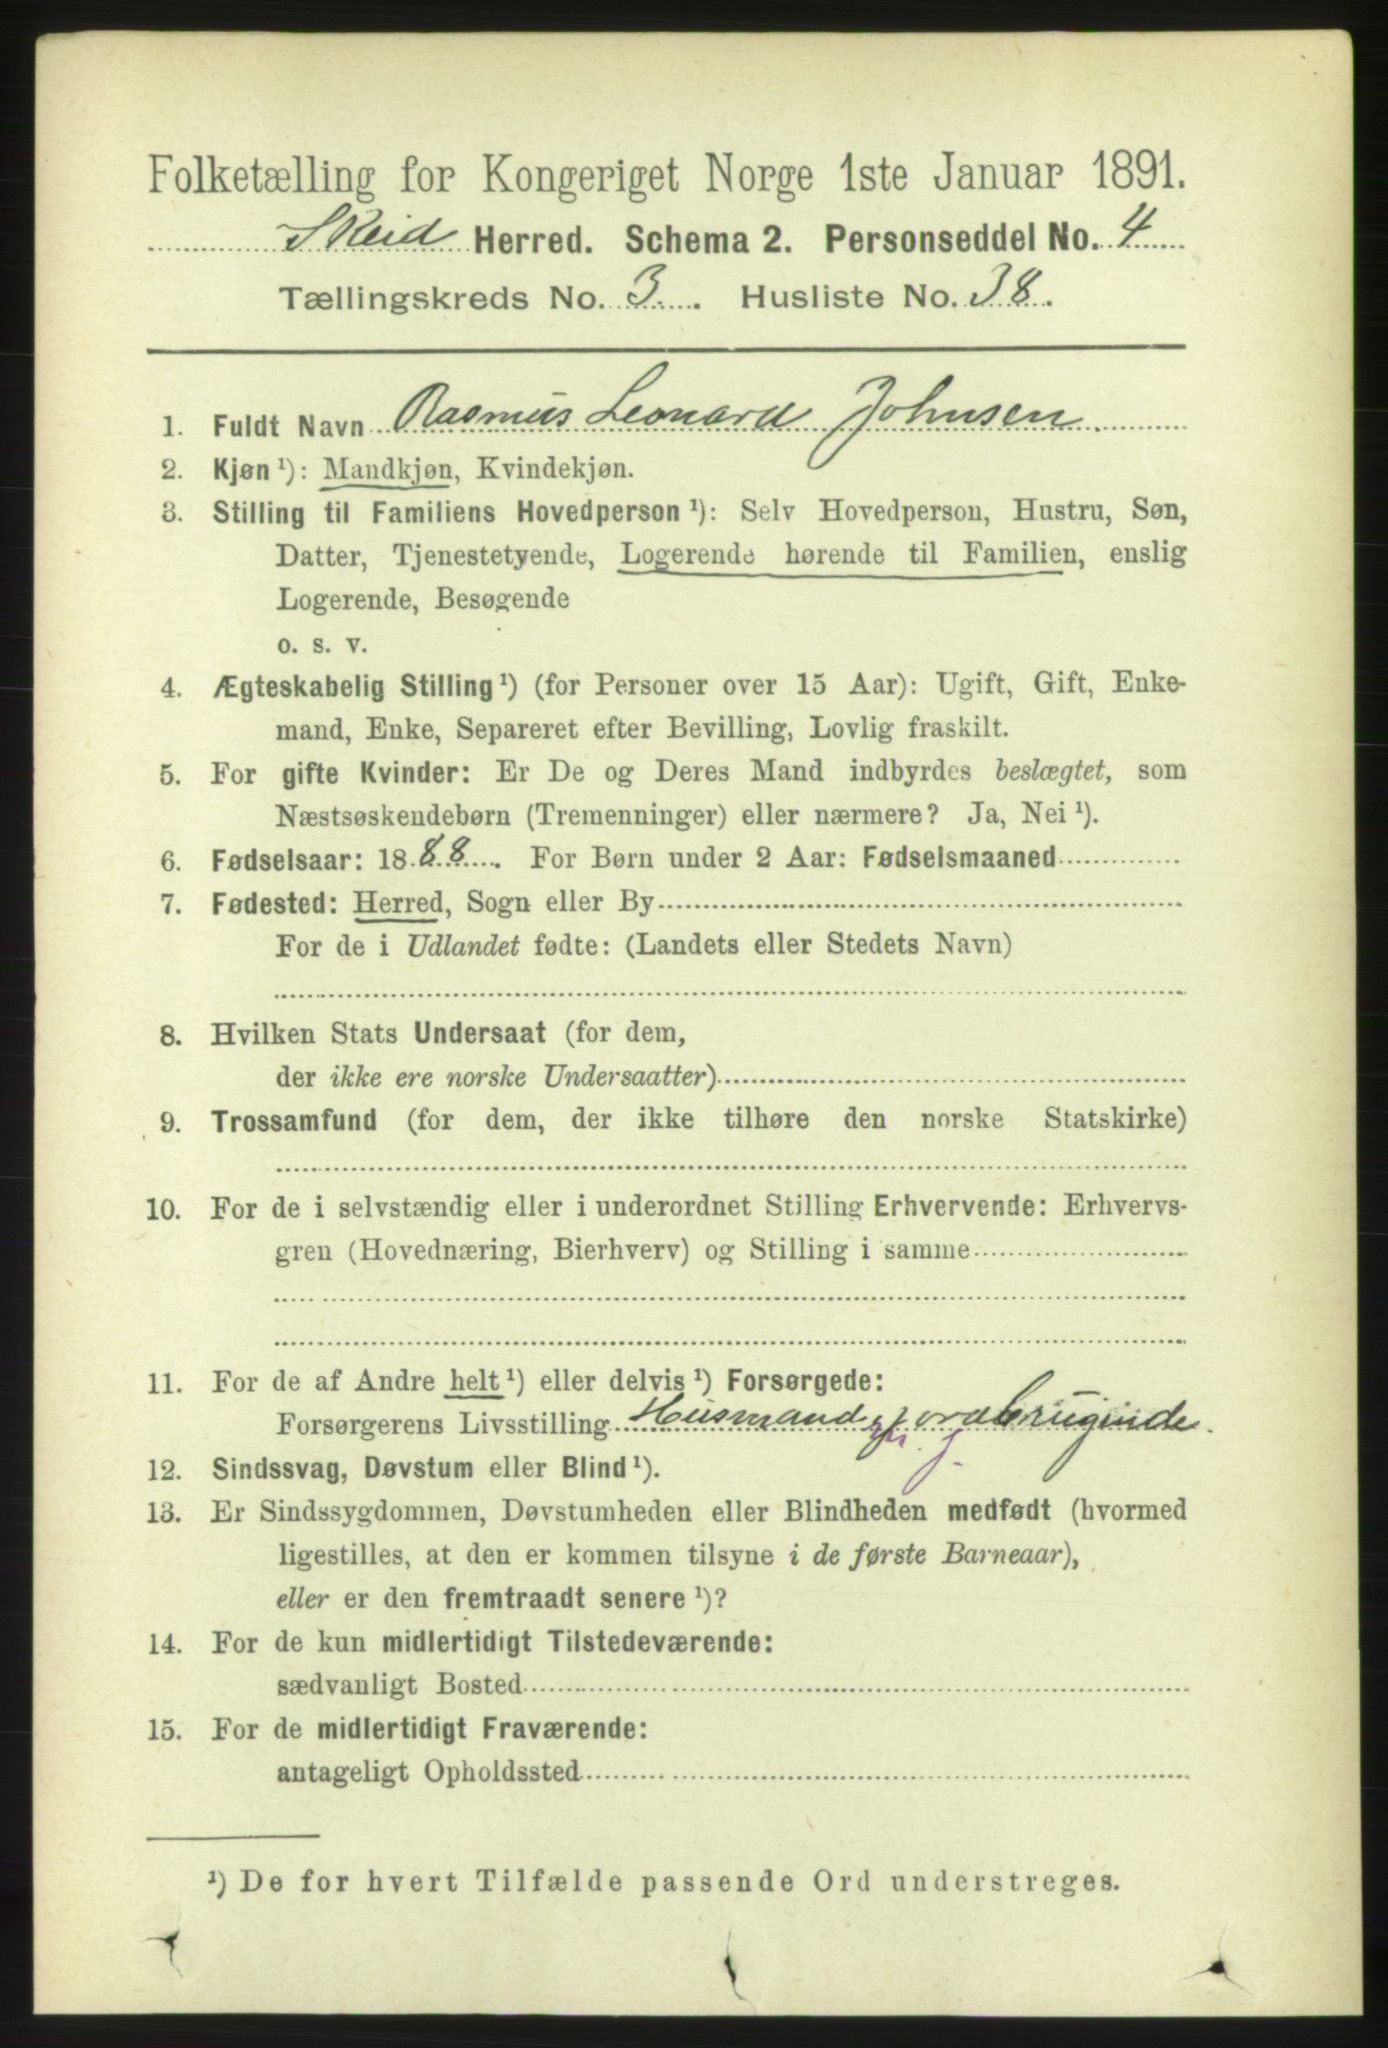 Folketælling for Kongeriget Norge 1ste Januar 1891.
Skeid Herred. Schema 2. Personseddel No. 4
Tællingskreds No. 3. Husliste No. 38.
1. Fuldt Navn Rasmus Leonard Johnsen
2. Kjøn ¹): Mandkjøn, Kvindekjøn.
3. Stilling til Familiens Hovedperson ¹): Selv Hovedperson, Hustru, Søn,
Datter, Tjenestetyende, Logerende hørende til Familien, enslig
Logerende, Besøgende
o. s. v.
4. Ægteskabelig Stilling ¹) (for Personer over 15 Aar): Ugift, Gift, Enke-
mand, Enke, Separeret efter Bevilling, Lovlig fraskilt.
5. For gifte Kvinder: Er De og Deres Mand indbyrdes beslægtet, som
Næstsøskendebørn (Tremenninger) eller nærmere? Ja, Nei ¹).
6. Fødselsaar: 1888. For Børn under 2 Aar: Fødselsmaaned
7. Fødested: Herred, Sogn eller By
For de i Udlandet fødte: (Landets eller Stedets Navn)
8. Hvilken Stats Undersaat (for dem,
der ikke ere norske Undersaatter)
9. Trossamfund (for dem, der ikke tilhøre den norske Statskirke)
10. For de i selvstændig eller i underordnet Stilling Erhvervende: Erhvervs-
gren (Hovednæring, Bierhverv) og Stilling i samme
11. For de af Andre helt ¹) eller delvis ¹) Forsørgede:
Forsørgerens Livsstilling Husmand jordbrugende
12. Sindssvag, Døvstum eller Blind ¹).
13. Er Sindssygdommen, Døvstumheden eller Blindheden medfødt (hvormed
ligestilles, at den er kommen tilsyne i de første Barneaar),
eller er den fremtraadt senere ¹)?
14. For de kun midlertidigt Tilstedeværende:
sædvanligt Bosted
15. For de midlertidigt Fraværende:
antageligt Opholdssted
¹) De for hvert Tilfælde passende Ord understreges.